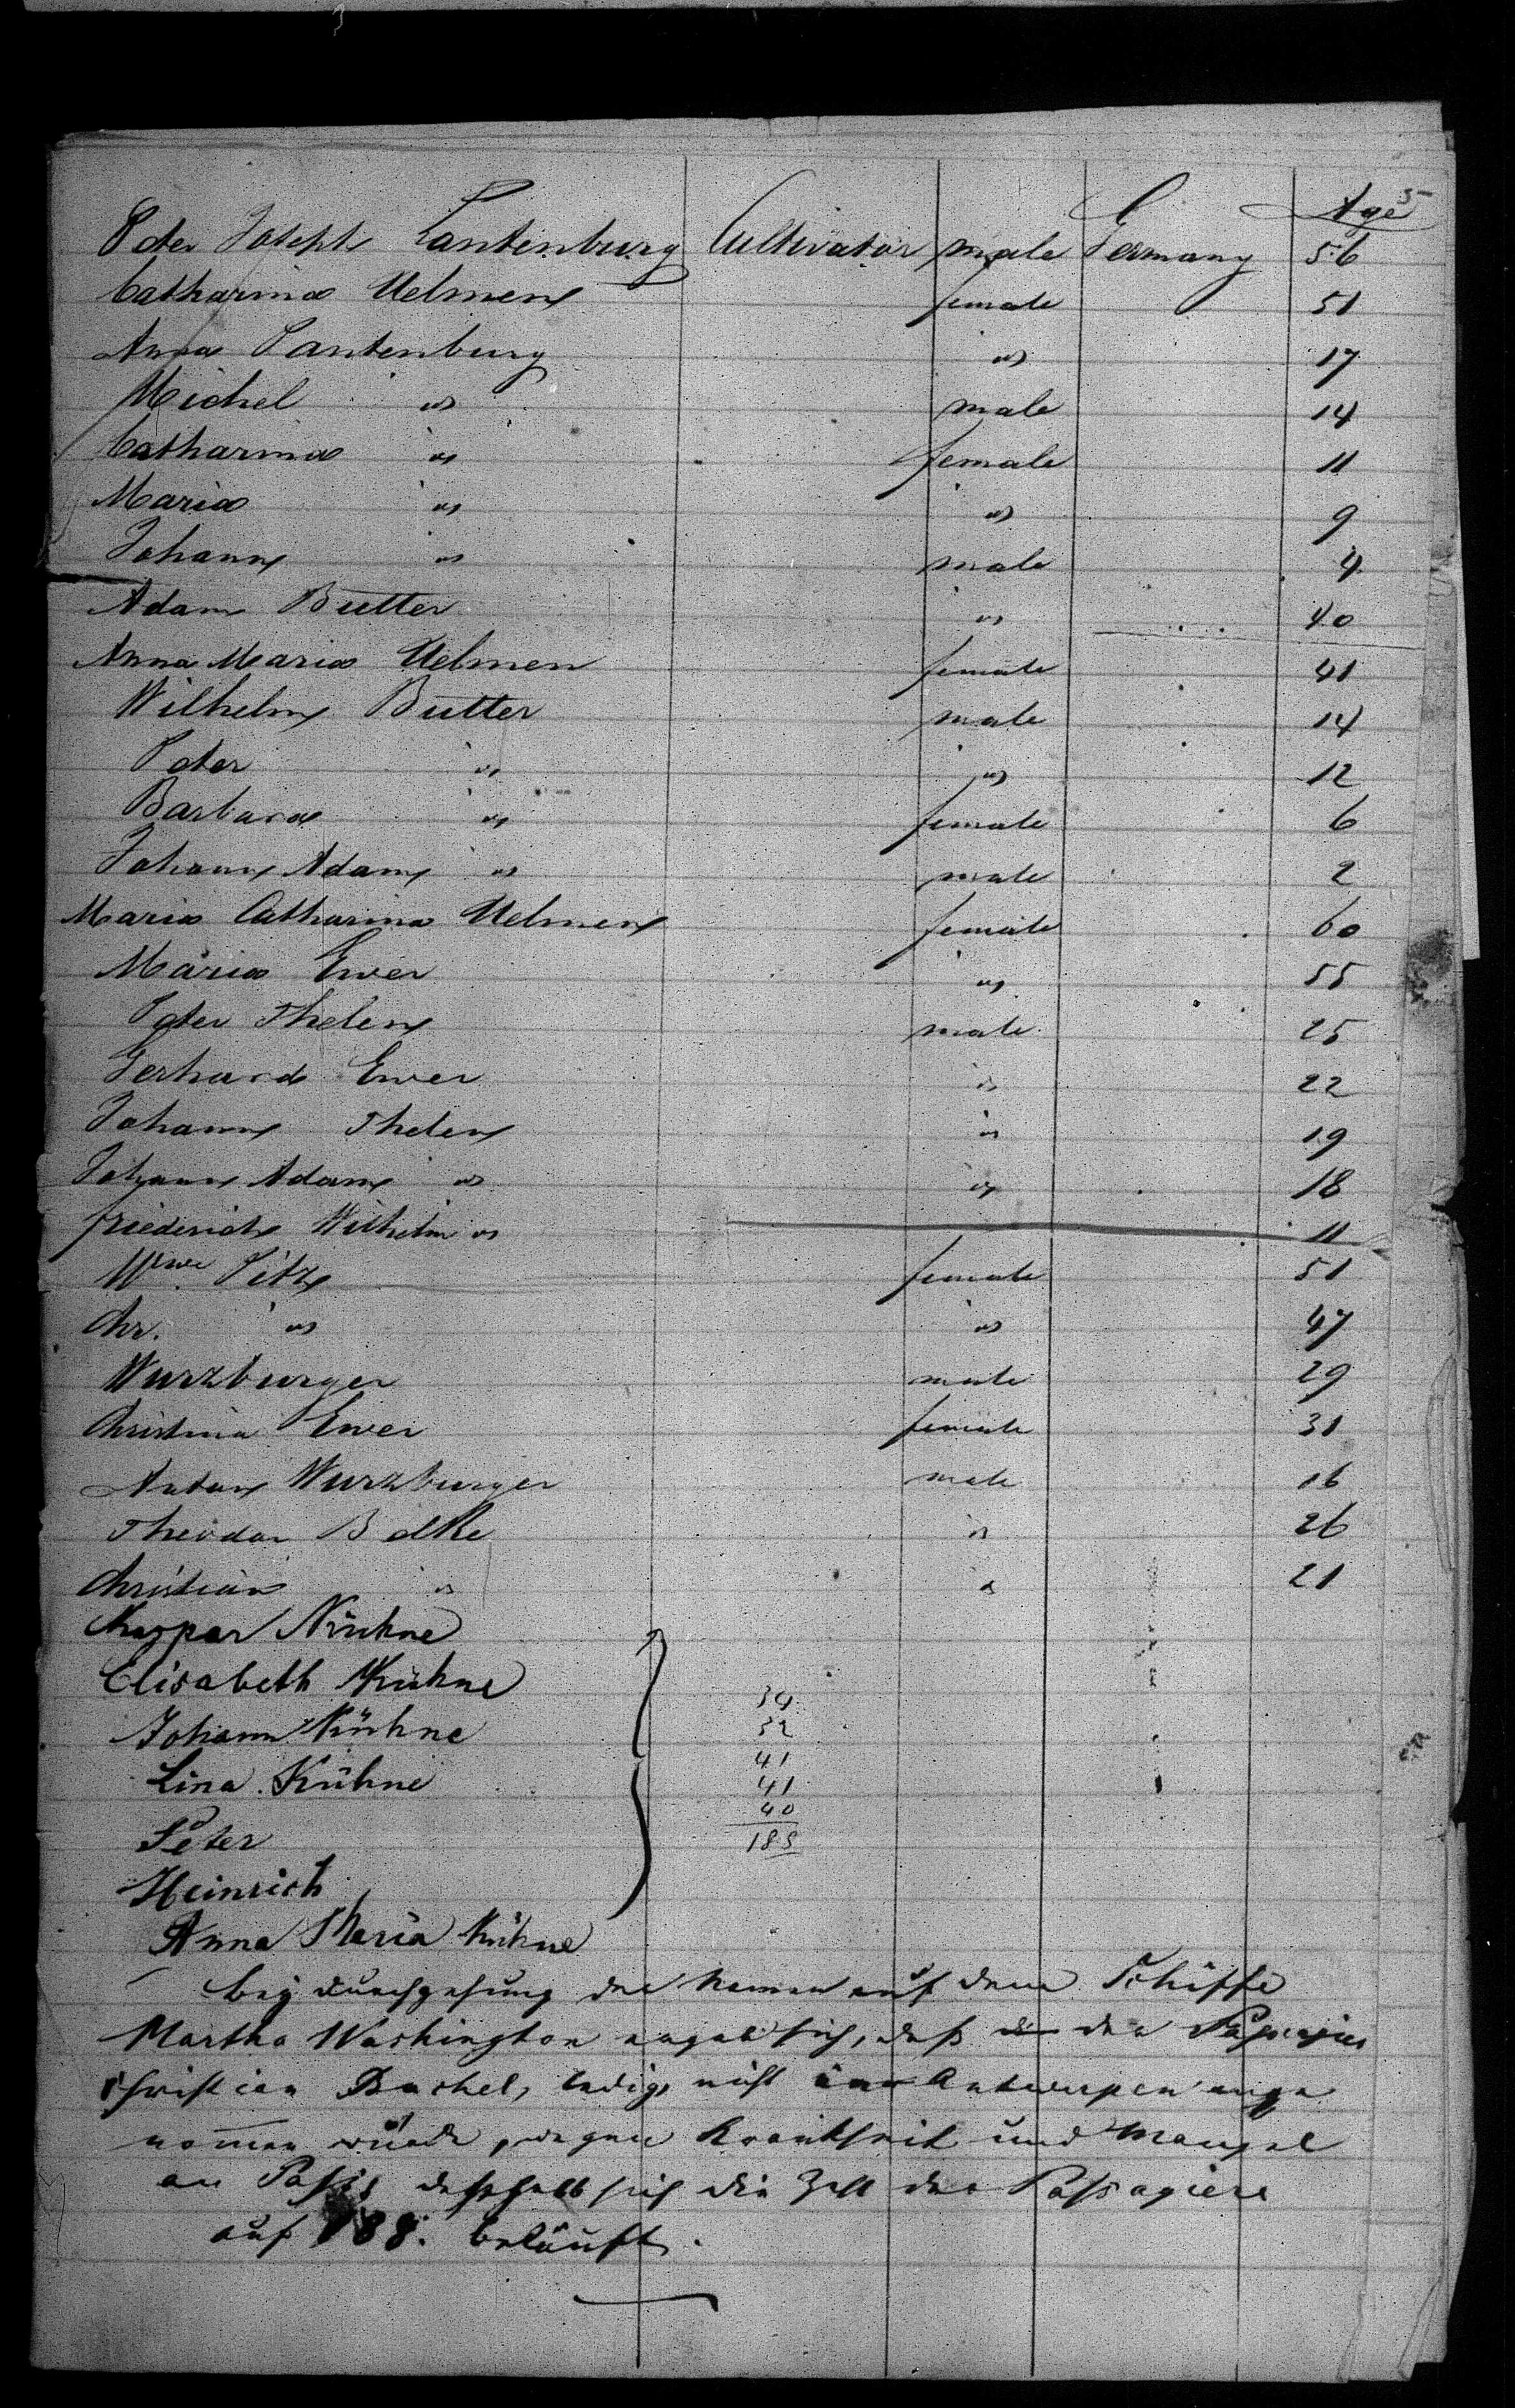 Age
Peter Joseph Pantenburg Cultivator male Germany 56
Catharina Uelmen female 51
Anna Pantenburg " 17
Michel " male 14
Catharina " female 11
Maria " " 9
Johann " male 4
Adam Butter " 40
Anna Maria Uelmen female 41
Wilhelm Butter male 14
Peter " " 12
Barbara " female 6
Johann Adam " male 2
Maria Catharina Uelmen female 60
Maria Ewer " 55
Peter Thelen male 25
Gerhard Ewer " 22
Johann Thelen " 19
Johann Adam " " 18
Friederich Wilhelm " 11
Wwe Pitz female 51
Chr. " " 47
Wurzburger male 29
Christina Ewer female 31
Anton Wurzburger male 16
Theodor Bolke " 26
Christian " " 21
Kaspar Kühne
Elisabeth Kühne
34
Johann Kühne
32
41
Lina Kühne
41
40
Peter
188
Heinrich
Anna Maria Kühne
bey Durchgehung der Namen auf dem Schiffe
Martha Washington ergab sich, daß der Passagier
Christian Bachel, ledig, nicht Antwerpen ange
nom̄en wurde, wegen Krankheit und Mangel
an Paß, deßhalb sich die Zahl der Passagiere
auf 188. beläuft.